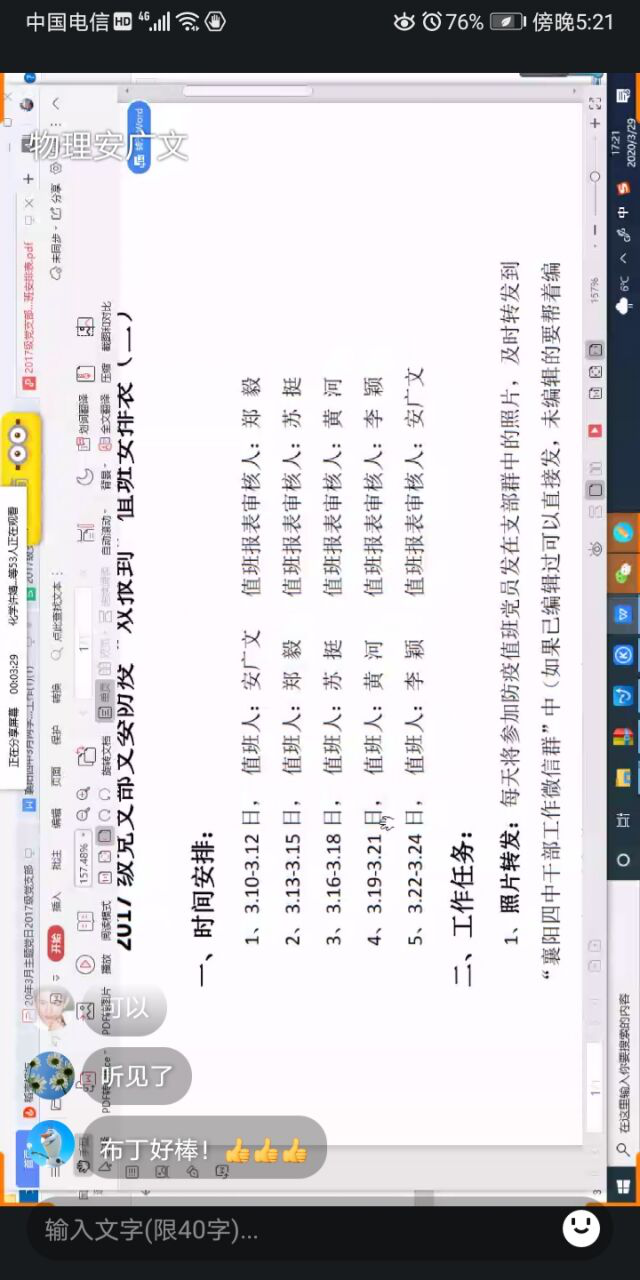 中国电信HD 4G
76% 傍晚5:21
物理安广文
转Word
2017级党支部...班安排表.pdf
未同步
分享
正在分享屏幕 00:03:29 化学许璐...等53人正在观看
开始 插入 批注 编辑 页面 保护 转换 点此查找文本
播放 阅读模式 157.48% 旋转文档 单页 自动滚动 背景 划词翻译 全文翻译 压缩 截图和对比
2017级党支部文安防疫“双报到”值班安排表（二）
一、时间安排：
1、3.10-3.12 日， 值班人：安广文 值班报表审核人：郑 毅
2、3.13-3.15 日， 值班人：郑 毅 值班报表审核人：苏 挺
3、3.16-3.18 日， 值班人：苏 挺 值班报表审核人：黄 河
4、3.19-3.21 日， 值班人：黄 河 值班报表审核人：李 颖
5、3.22-3.24 日， 值班人：李 颖 值班报表审核人：安广文
二、工作任务：
1、照片转发：每天将参加防疫值班党员发在支部群中的照片，及时转发到
“襄阳四中干部工作微信群”中（如果已编辑过可以直接发，未编辑的要帮着编
157%
在这里输入你要搜索的内容
6°C
中
17:21
2020/3/29
可以
听见了
布丁好棒！👍👍👍
输入文字(限40字)...